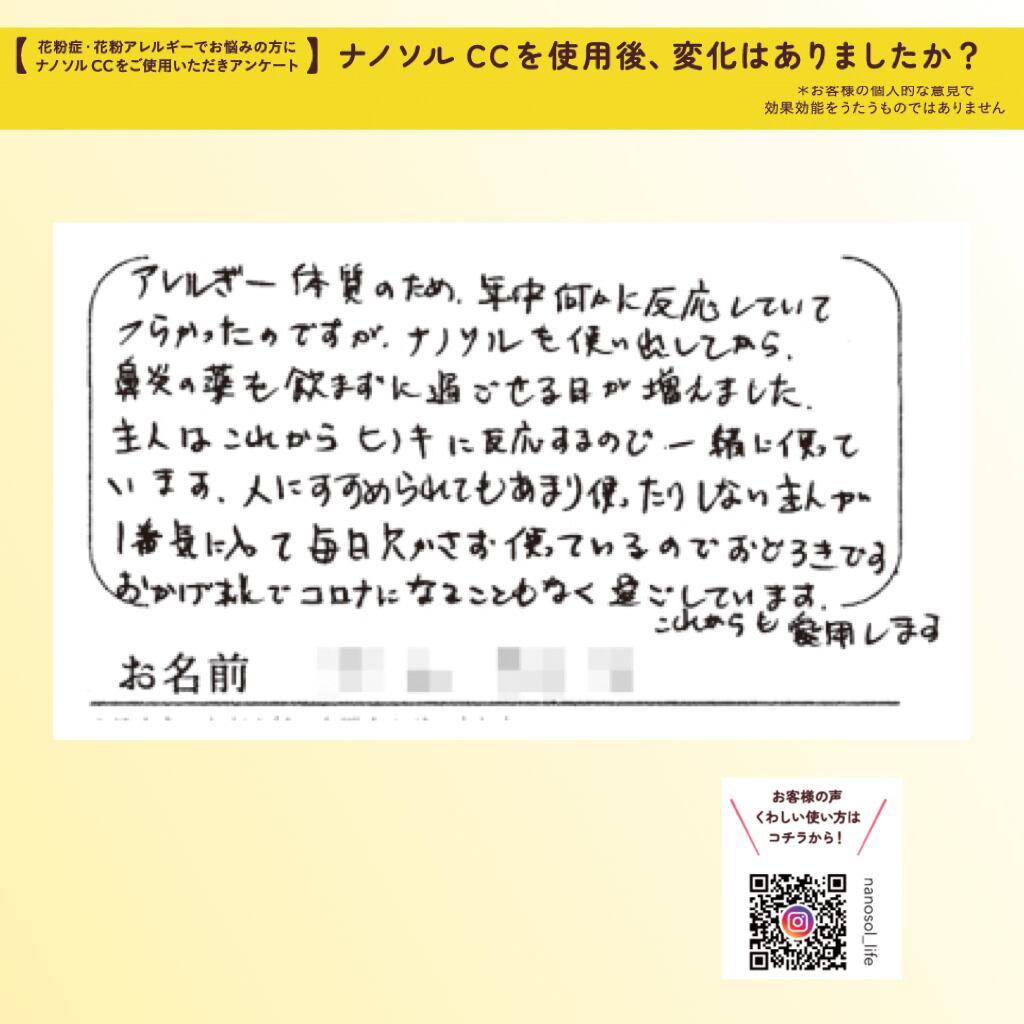 【花粉症・花粉アレルギーでお悩みの方に
ナノソルCCをご使用いただきアンケート】
ナノソル CCを使用後、変化はありましたか？
＊お客様の個人的な意見で
効果効能をうたうものではありません
アレルギー体質のため、年中何かに反応していて
つらかったのですが、ナノソルを使い出してから、
鼻炎の薬も飲まずに過ごせる日が増えました。
主人はこれからヒノキに反応するので一緒に使って
います。人にすすめられてもあまり使ったりしない主人が
1番気に入って毎日欠かさず使っているのでおどろきです
おかげ様でコロナになることもなく過ごしています。
これからも愛用します
お名前
お客様の声
くわしい使い方は
コチラから！
nanosol_life